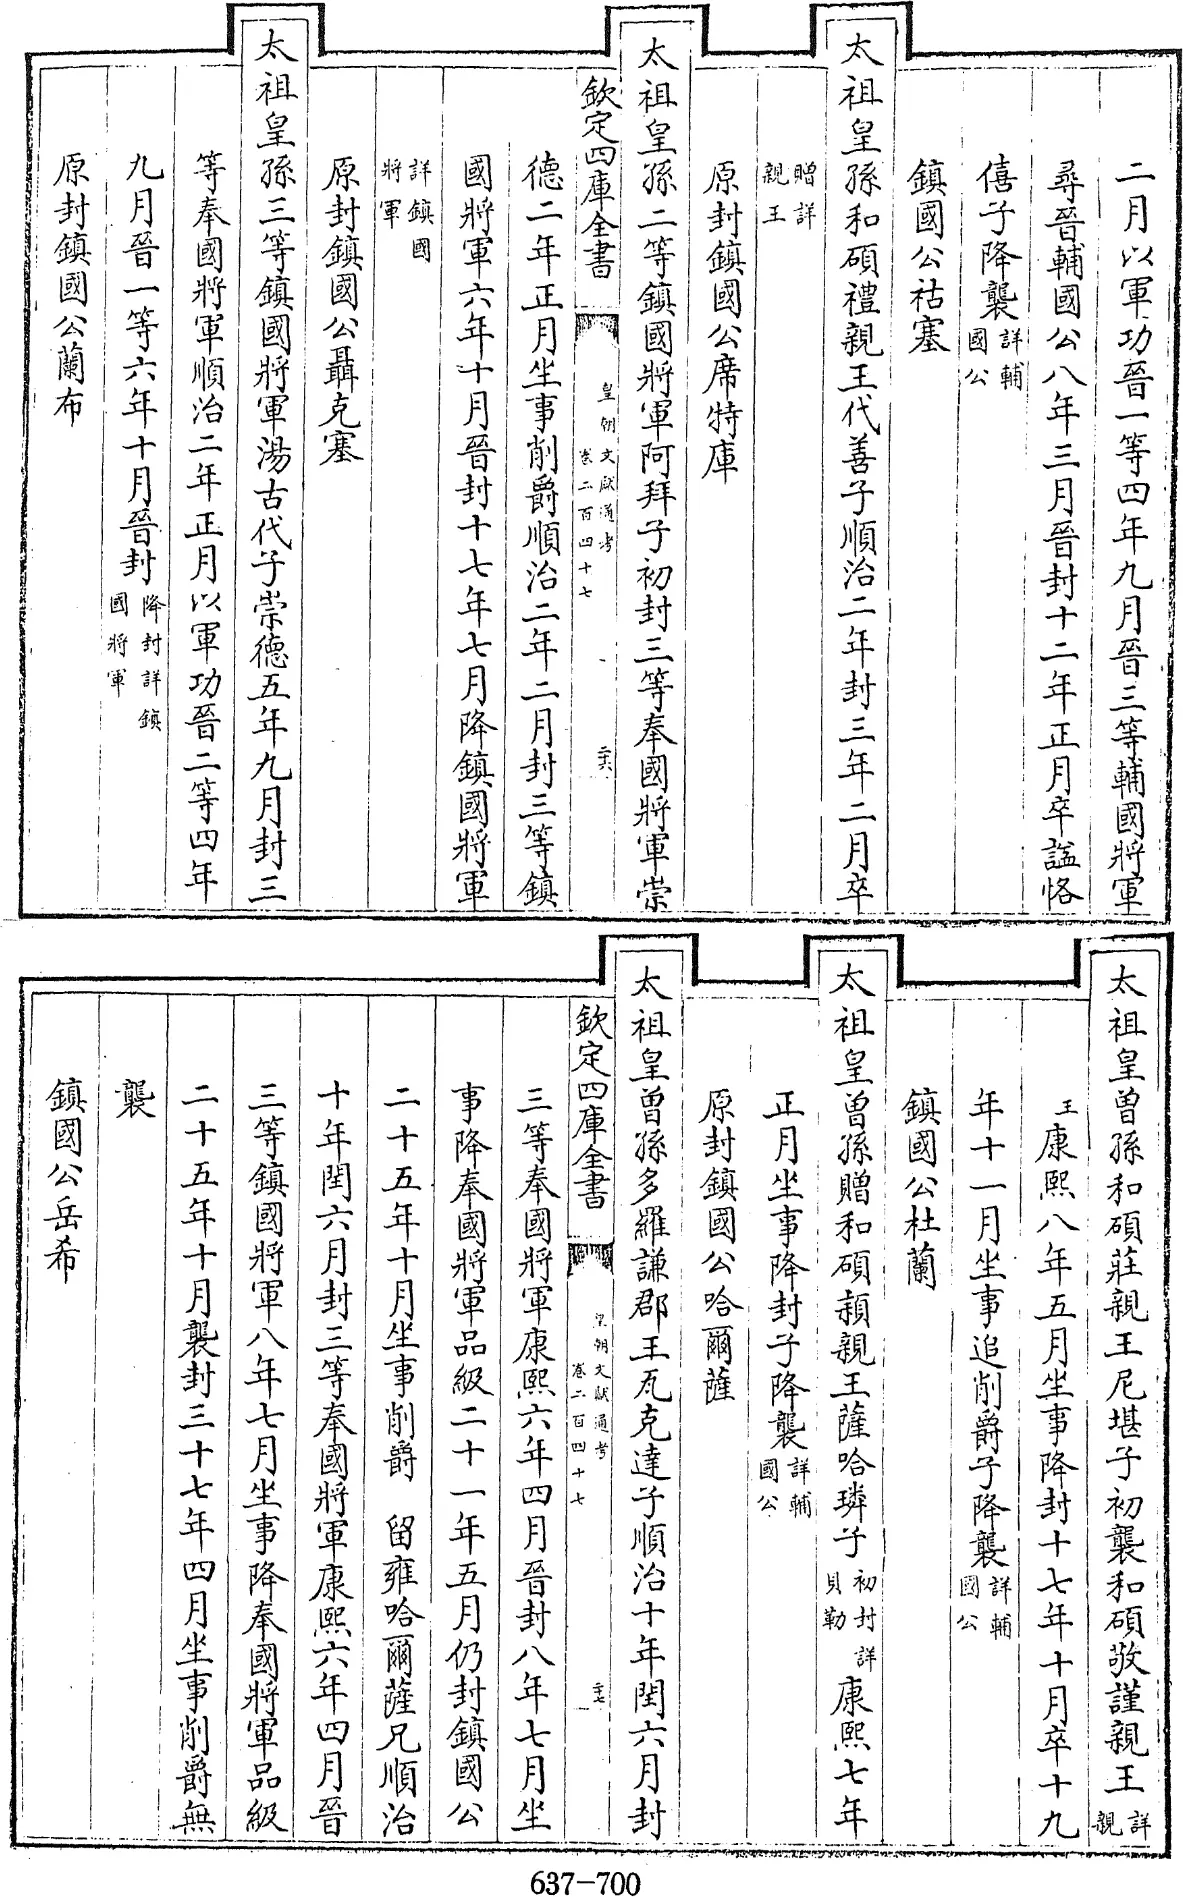 二月以軍功晉一等四年九月晉三等輔國將軍
尋晉輔國公八年三月晉封十二年正月卒諡恪
僖子降襲詳輔國公
鎮國公祜塞
太祖皇孫和碩禮親王代善子順治二年封三年二月卒
贈詳親王
原封鎮國公席特庫
太祖皇孫二等鎮國將軍阿拜子初封三等奉國將軍崇
欽定四庫全書
皇朝文獻通考
卷二百四十七
二十六
德二年正月坐事削爵順治二年二月封三等鎮
國將軍六年十月晉封十七年七月降鎮國將軍
詳鎮國將軍
原封鎮國公聶克塞
太祖皇孫三等鎮國將軍湯古代子崇德五年九月封三
等奉國將軍順治二年正月以軍功晉二等四年
九月晉一等六年十月晉封降封詳鎮國將軍
原封鎮國公蘭布
太祖皇曾孫和碩莊親王尼堪子初襲和碩敬謹親王詳親
王康熙八年五月坐事降封十七年十月卒十九
年十一月坐事追削爵子降襲詳輔國公
鎮國公杜蘭
太祖皇曾孫贈和碩穎親王薩哈璘子初封詳貝勒康熙七年
正月坐事降封子降襲詳輔國公
原封鎮國公哈爾薩
太祖皇曾孫多羅謙郡王瓦克達子順治十年閏六月封
欽定四庫全書
皇朝文獻通考
卷二百四十七
二十七
三等奉國將軍康熙六年四月晉封八年七月坐
事降奉國將軍品級二十一年五月仍封鎮國公
二十五年十月坐事削爵 留雍哈爾薩兄順治
十年閏六月封三等奉國將軍康熙六年四月晉
三等鎮國將軍八年七月坐事降奉國將軍品級
二十五年十月襲封三十七年四月坐事削爵無
襲
鎮國公岳希
637-700